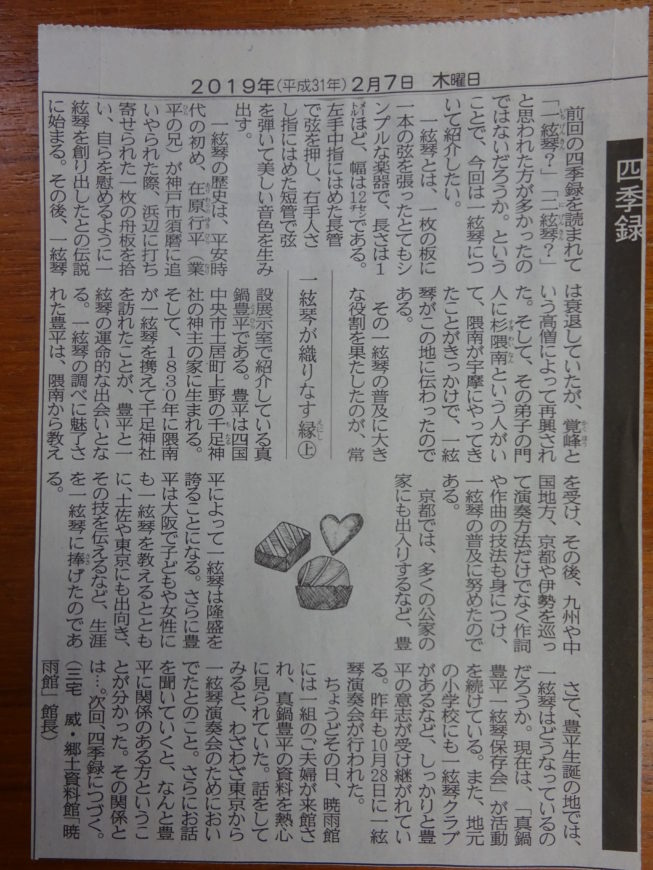 2019年(平成31年)2月7日 木曜日
四季録
一絃琴が織りなす縁㊤
前回の四季録を読まれて
「一絃琴?」「二絃琴?」
と思われた方が多かったの
ではないだろうか。という
ことで、今回は一絃琴につ
いて紹介したい。
一絃琴とは、一枚の板に
一本の弦を張ったとてもシ
ンプルな楽器で、長さは1
㍍ほど、幅は12㌢である。
左手中指にはめた長管
で弦を押し、右手人さ
し指にはめた短管で弦
を弾いて美しい音色を生み
出す。
一絃琴の歴史は、平安時
代の初め、在原行平(業
平の兄)が神戸市須磨に追
いやられた際、浜辺に打ち
寄せられた一枚の舟板を拾
い、自らを慰めるように一
絃琴を創り出したとの伝説
に始まる。その後、一絃琴
は衰退していたが、覚峰と
いう高僧によって再興され
た。そして、その弟子の門
人に杉隈南という人がい
て、隈南が宇摩にやってき
たことがきっかけで、一絃
琴がこの地に伝わったので
ある。
その一絃琴の普及に大き
な役割を果たしたのが、常
設展示室で紹介している真
鍋豊平である。豊平は四国
中央市土居町上野の千足神
社の神主の家に生まれる。
そして、1830年に隈南
が一絃琴を携えて千足神社
を訪れたことが、豊平と一
絃琴の運命的な出会いとな
る。一絃琴の調べに魅了さ
れた豊平は、隈南から教え
を受け、その後、九州や中
国地方、京都や伊勢を巡っ
て演奏方法だけでなく作詞
や作曲の技法も身につけ、
一絃琴の普及に努めたので
ある。
京都では、多くの公家の
家にも出入りするなど、豊
平によって一絃琴は隆盛を
誇ることになる。さらに豊
平は大阪で子どもや女性に
も一絃琴を教えるととも
に、土佐や東京にも出向き、
その技を伝えるなど、生涯
を一絃琴に捧げたのであ
る。
さて、豊平生誕の地では、
一絃琴はどうなっているの
だろうか。現在は、「真鍋
豊平一絃琴保存会」が活動
を続けている。また、地元
の小学校にも一絃琴クラブ
があるなど、しっかりと豊
平の意志が受け継がれてい
る。昨年も10月28日に一絃
琴演奏会が行われた。
ちょうどその日、暁雨館
には一組のご夫婦が来館さ
れ、真鍋豊平の資料を熱心
に見られていた。話をして
みると、わざわざ東京から
一絃琴演奏会のためにおい
でたとのこと。さらにお話
を聞いていくと、なんと豊
平に関係のある方というこ
とが分かった。その関係と
は…。次回、四季録につづく。
(三宅 威・郷土資料館「暁
雨館」館長)